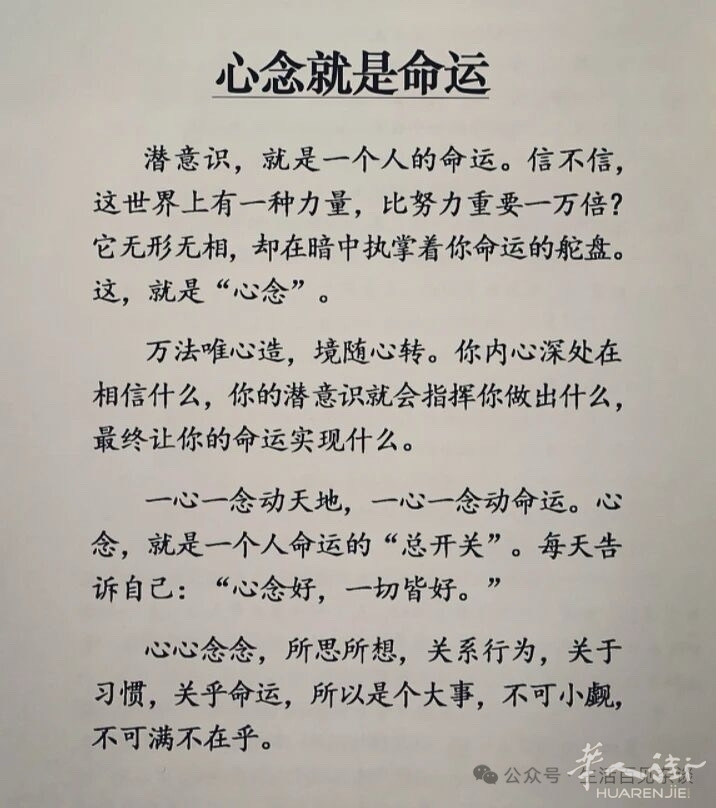 心念就是命运
潜意识，就是一个人的命运。信不信，
这世界上有一种力量，比努力重要一万倍？
它无形无相，却在暗中执掌着你命运的舵盘。
这，就是“心念”。
万法唯心造，境随心转。你内心深处在
相信什么，你的潜意识就会指挥你做出什么，
最终让你的命运实现什么。
一心一念动天地，一心一念动命运。心
念，就是一个人命运的“总开关”。每天告
诉自己：“心念好，一切皆好。”
心心念念，所思所想，关系行为，关于
习惯，关乎命运，所以是个大事，不可小觑，
不可满不在乎。
公众号
华人街
HUARENJIE